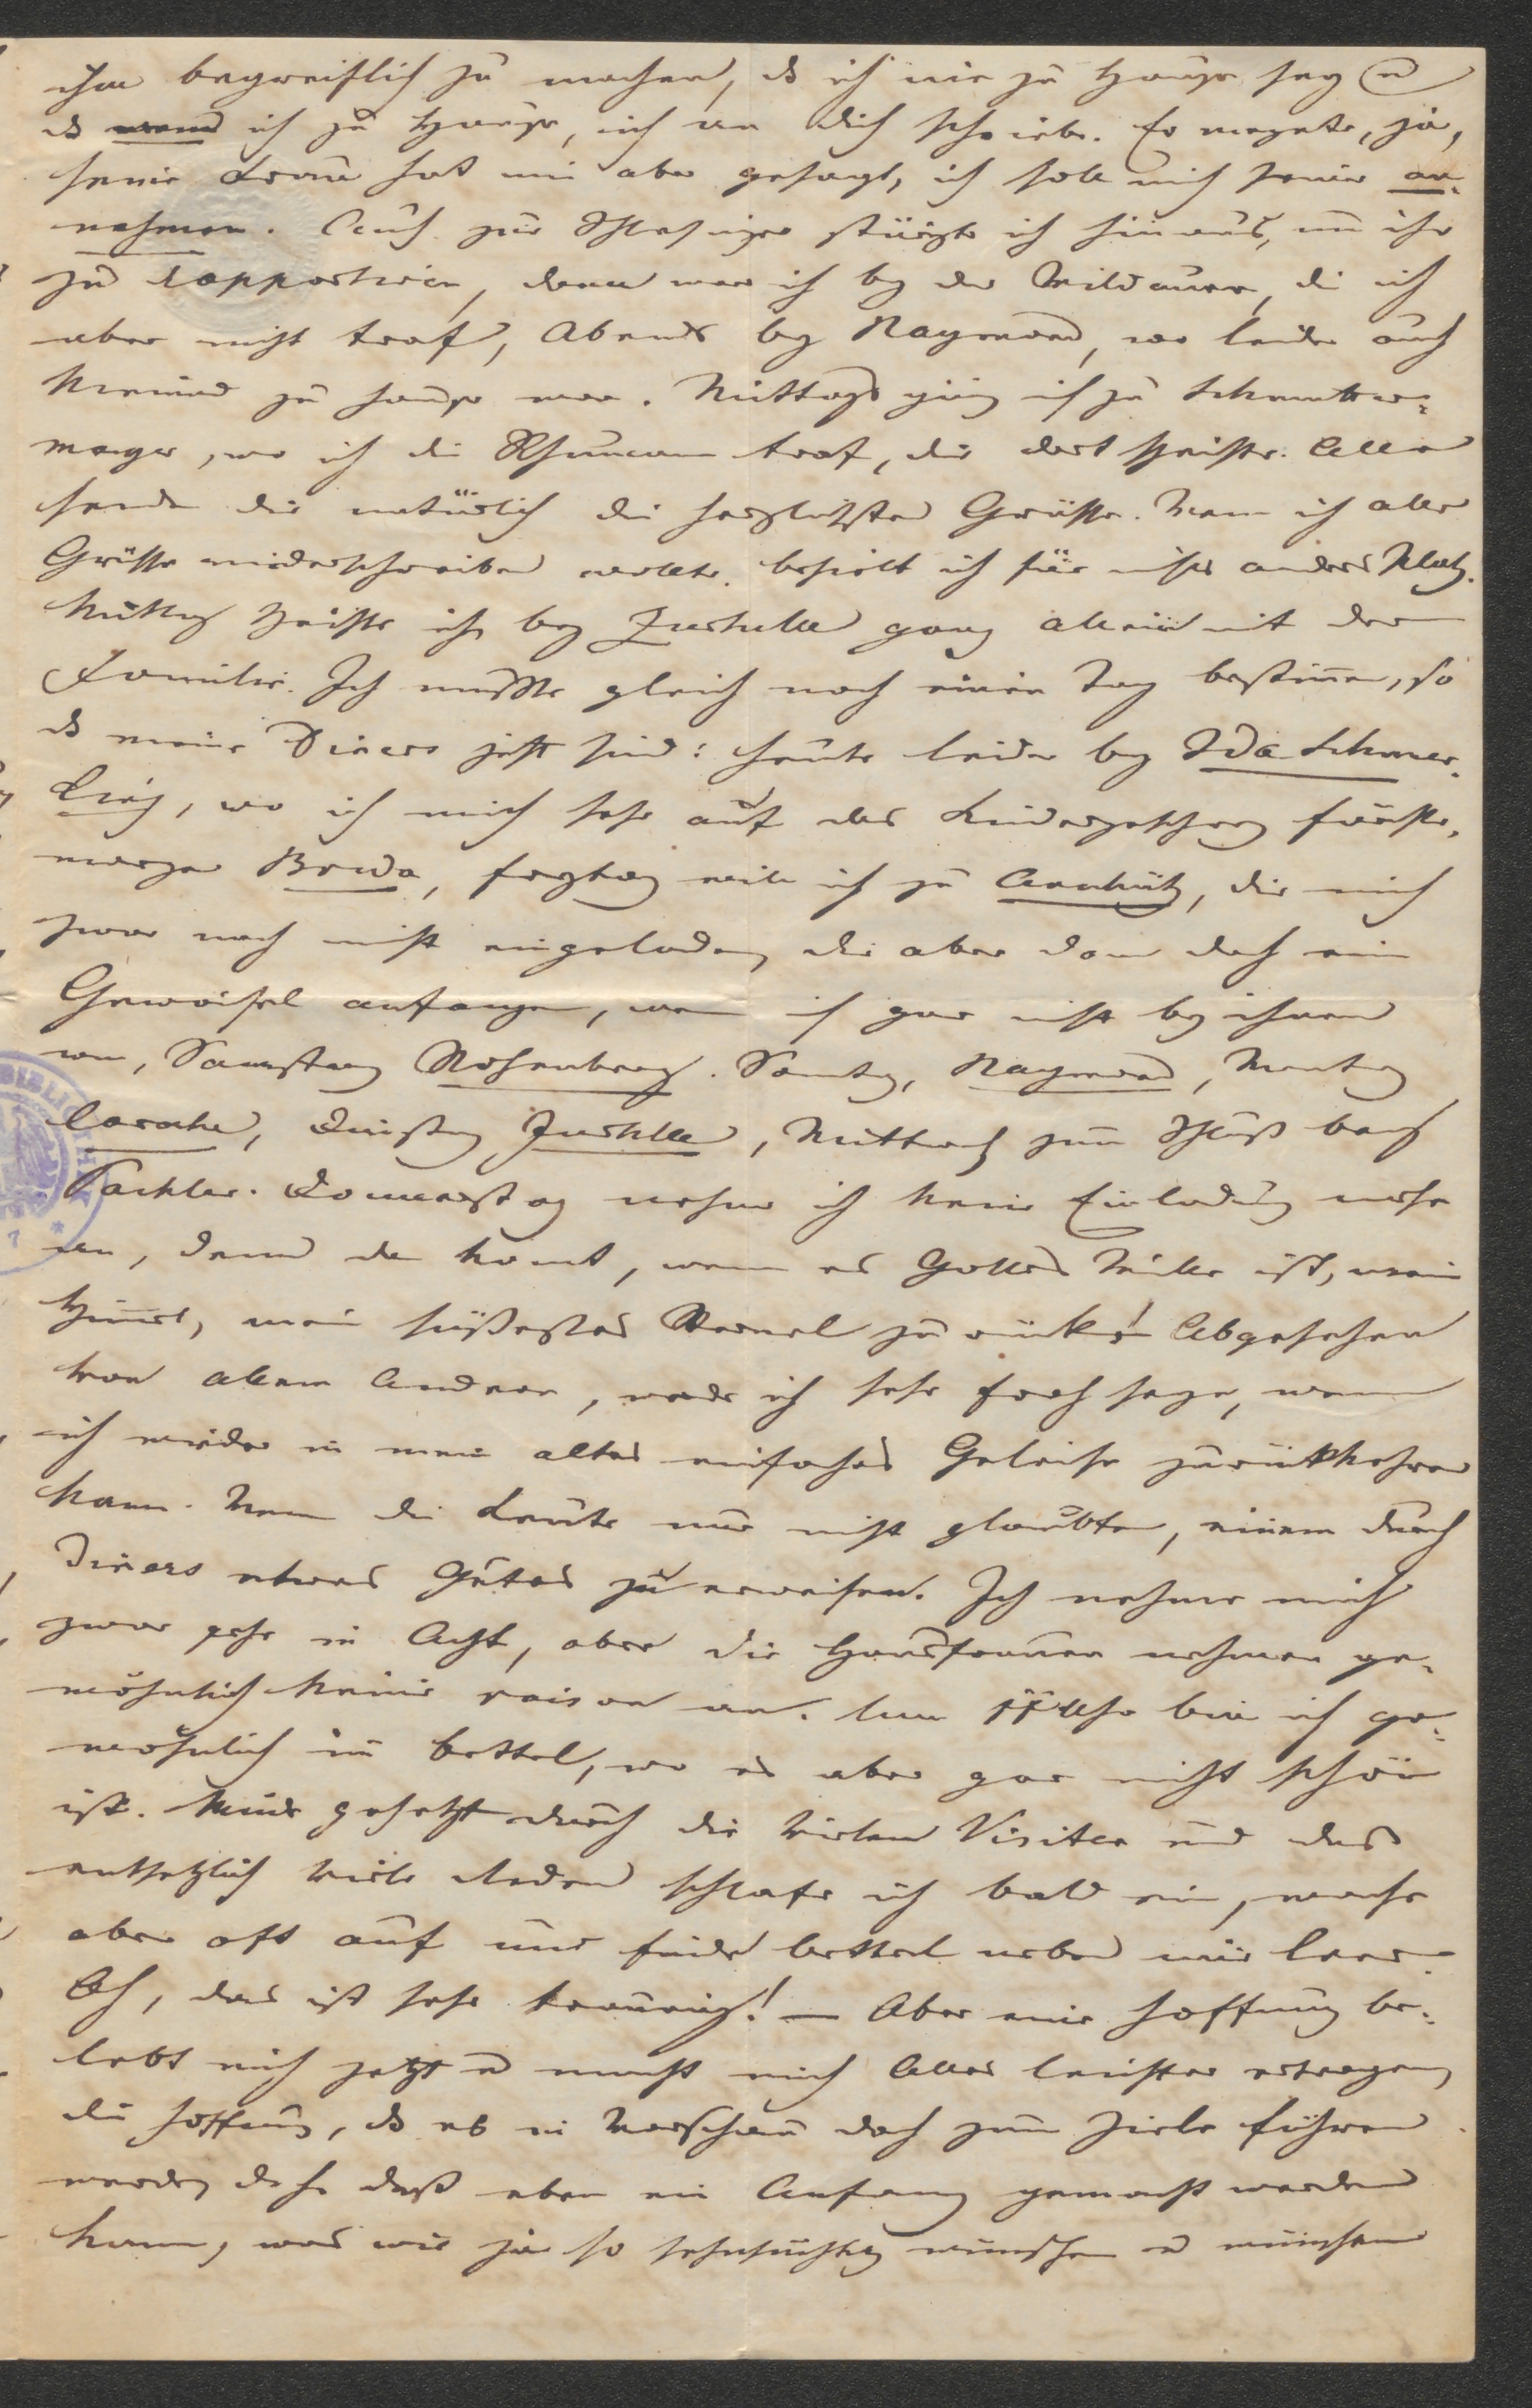 ihm begreiflich zu machen, ds ich nie zu Hause sey u
ds wenn ich zu Hause, ich an Dich schriebe. Er meynte, ja,
seine Frau hat mir aber gesagt, ich solle mich seiner an-
nehmen. Auch zur Schlesinger stürzte ich hinaus, um ihr
zu rapportiren, dann war ich bey der Wildauer, die ich
aber nicht traf, Abends bey Raymond, wo leider auch
Niemand zu Hause war. Mittags ging ich zu Schmutter-
mayer, wo ich die traf, die dort speiste. Alle
senden dir natürlich die herzlichsten Grüsse. Wenn ich alle
Grüsse niederschreiben wollte, behielt ich für nichts anders Platz.
Mittag speiste ich bey Zuschulla ganz allein mit der
Familie. Ich musste gleich noch einen Tag bestimen, so
ds meine Diners jetzt sind: heute leider bey Ida Schmer-
ling, wo ich mich sehr auf das Kindergeschrey fürchte,
morgen Breda, freytag will ich zu Anschütz, die mich
zwar noch nicht eingeladen, die aber dann doch ein
anfangen, wenn ich gar nicht bey ihnen
war, Samstag Rosenberg. Sontag, Raymond, Montag
Laroche, Dienstag Zuschulla, Mittwoch zum Schluß bey
Pachler. Donnerstag nehme ich keine Einladung mehr
an, denn da komt, wenn es Gottes Wille ist, mein
Himel, mein süßestes zurück! Abgesehen
von allem Andern, werde ich sehr froh seyn, wenn
ich wieder in mein altes einfaches Geleise zurückkehren
kann. Wenn die Leute nur nicht glaubten, einem durch
Diners etwas Gutes zu erweisen. Ich nehme mich
zwar sehr in Acht, aber die Hausfrauen nehmen ge-
wöhnlich keine raison an. Um 11 Uhr bin ich ge-
wöhnlich im bettel, wo es aber gar nicht schön
ist. Müde gehetzt durch die vielen Visiten und das
entsetzlich viele Reden schlafe ich bald ein, wache
aber oft auf und finde bettel neben mir leer.
Ach, das ist sehr traurig! — Aber eine Hoffnung be-
lebt mich jetzt u macht mich Alles leichter ertragen,
die Hoffnung, ds es in Warschau doch zum Ziele führen
werde, d. h. daß eben ein Anfang gemacht werden
kann, was wir ja so sehnsüchtig wünschen u wünschen